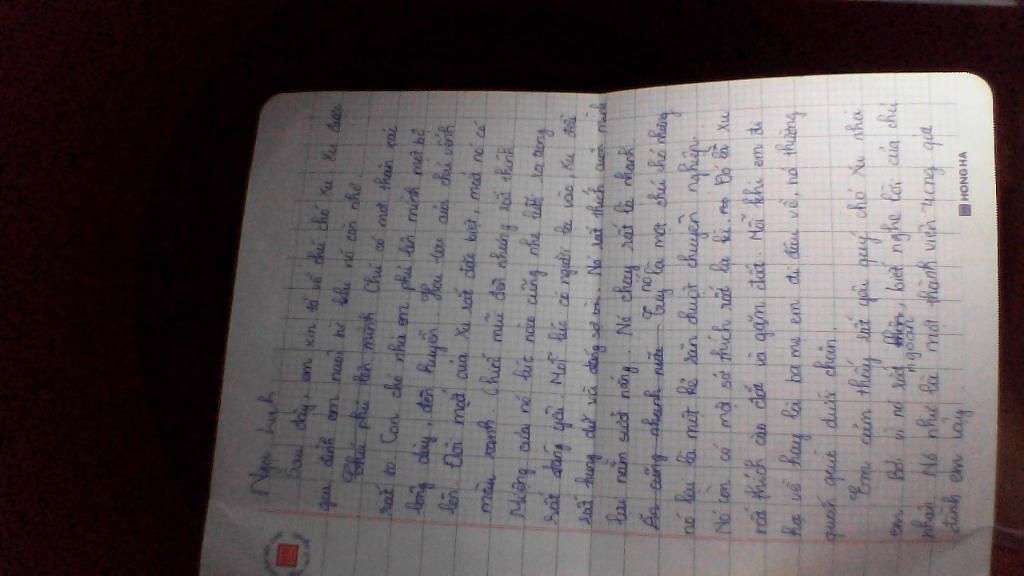 Ngọc Linh
Sau đây, em xin tả về chú chó Xu. Xu được
gia đình em nuôi từ khi nó còn nhỏ.
Chú phủ lên mình Chú có một thân hình
rất to. Con chó nhà em phủ lên mình một bộ
lông dày, đen huyền. Hai tai của chú vểnh
lên. Đôi mắt của Xu rất đặc biệt, mắt nó có
màu xanh. Chiếc mũi đen nhưng rất thính
Miệng của nó lúc nào cũng như biết
rất đáng yêu. Mỗi lúc có người lạ vào, Xu
rất hung dữ và đáng sợ Nó rất thích cuộn mình
lại nằm sưởi nắng. Nó chạy rất là nhanh
Ăn cũng nhanh nữa Tuy nó là một chú chó nhưng
nó lại là một kẻ săn chuột chuyên nghiệp.
Nó còn có một sở thích rất là kì. Đó là Xu
nó thích cào đất và gặm đất. Mỗi khi em đi
học về hay là ba mẹ em đi đâu về, nó thường
quấn quýt dưới chân.
Em cảm thấy rất yêu quý chó Xu nhà
em. Bởi vì nó rất ngoan, biết nghe lời của chủ
nhân. Nó như là một thành viên trong gia
đình em vậy.
HONG HA